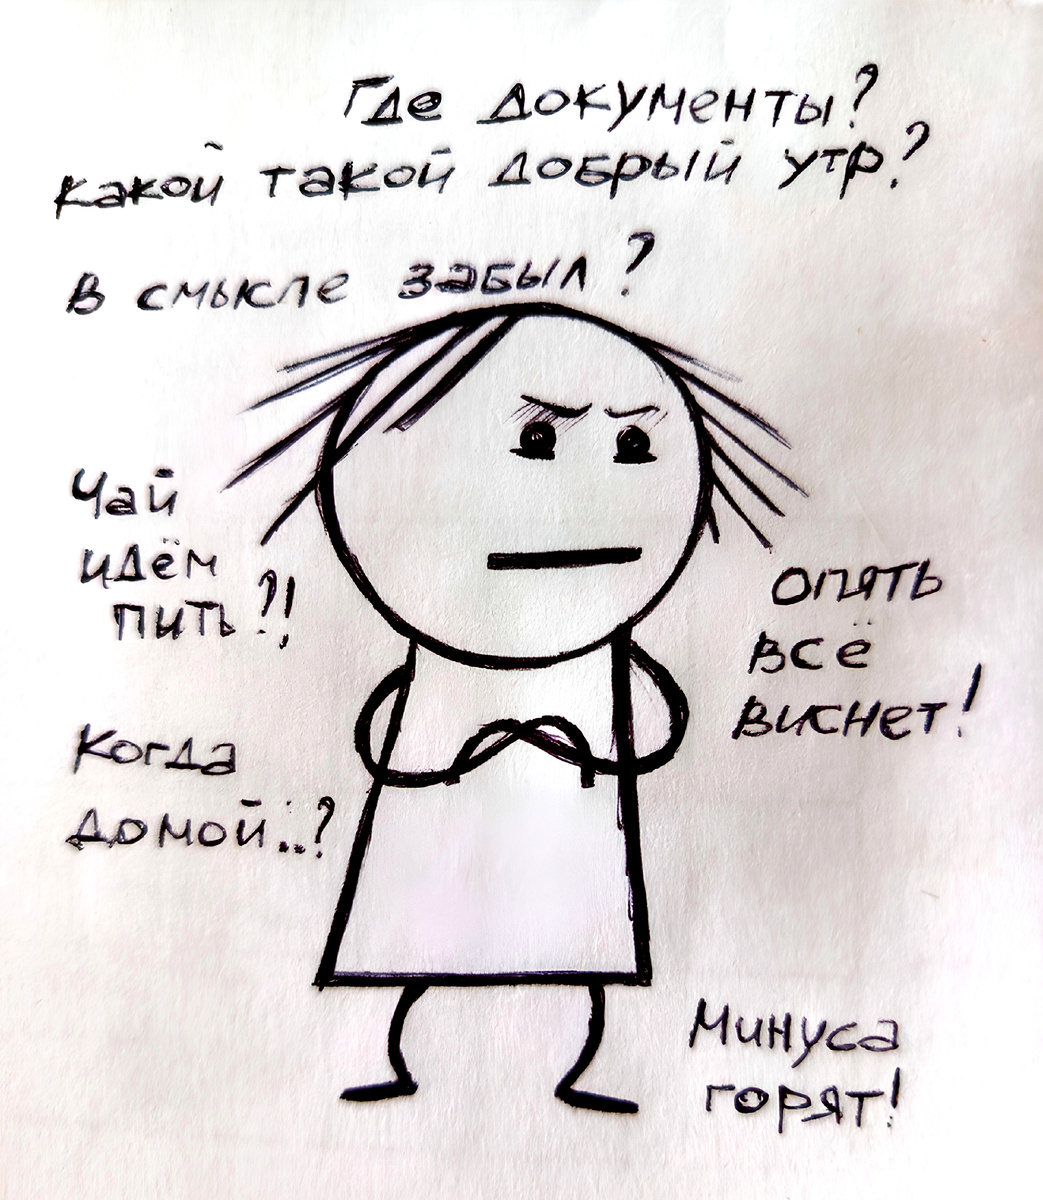 Где документы?
какой такой добрый утр?
в смысле забыл?
Чай
идём
пить?!
опять
всё
виснет!
Когда
домой..?
Минуса
горят!